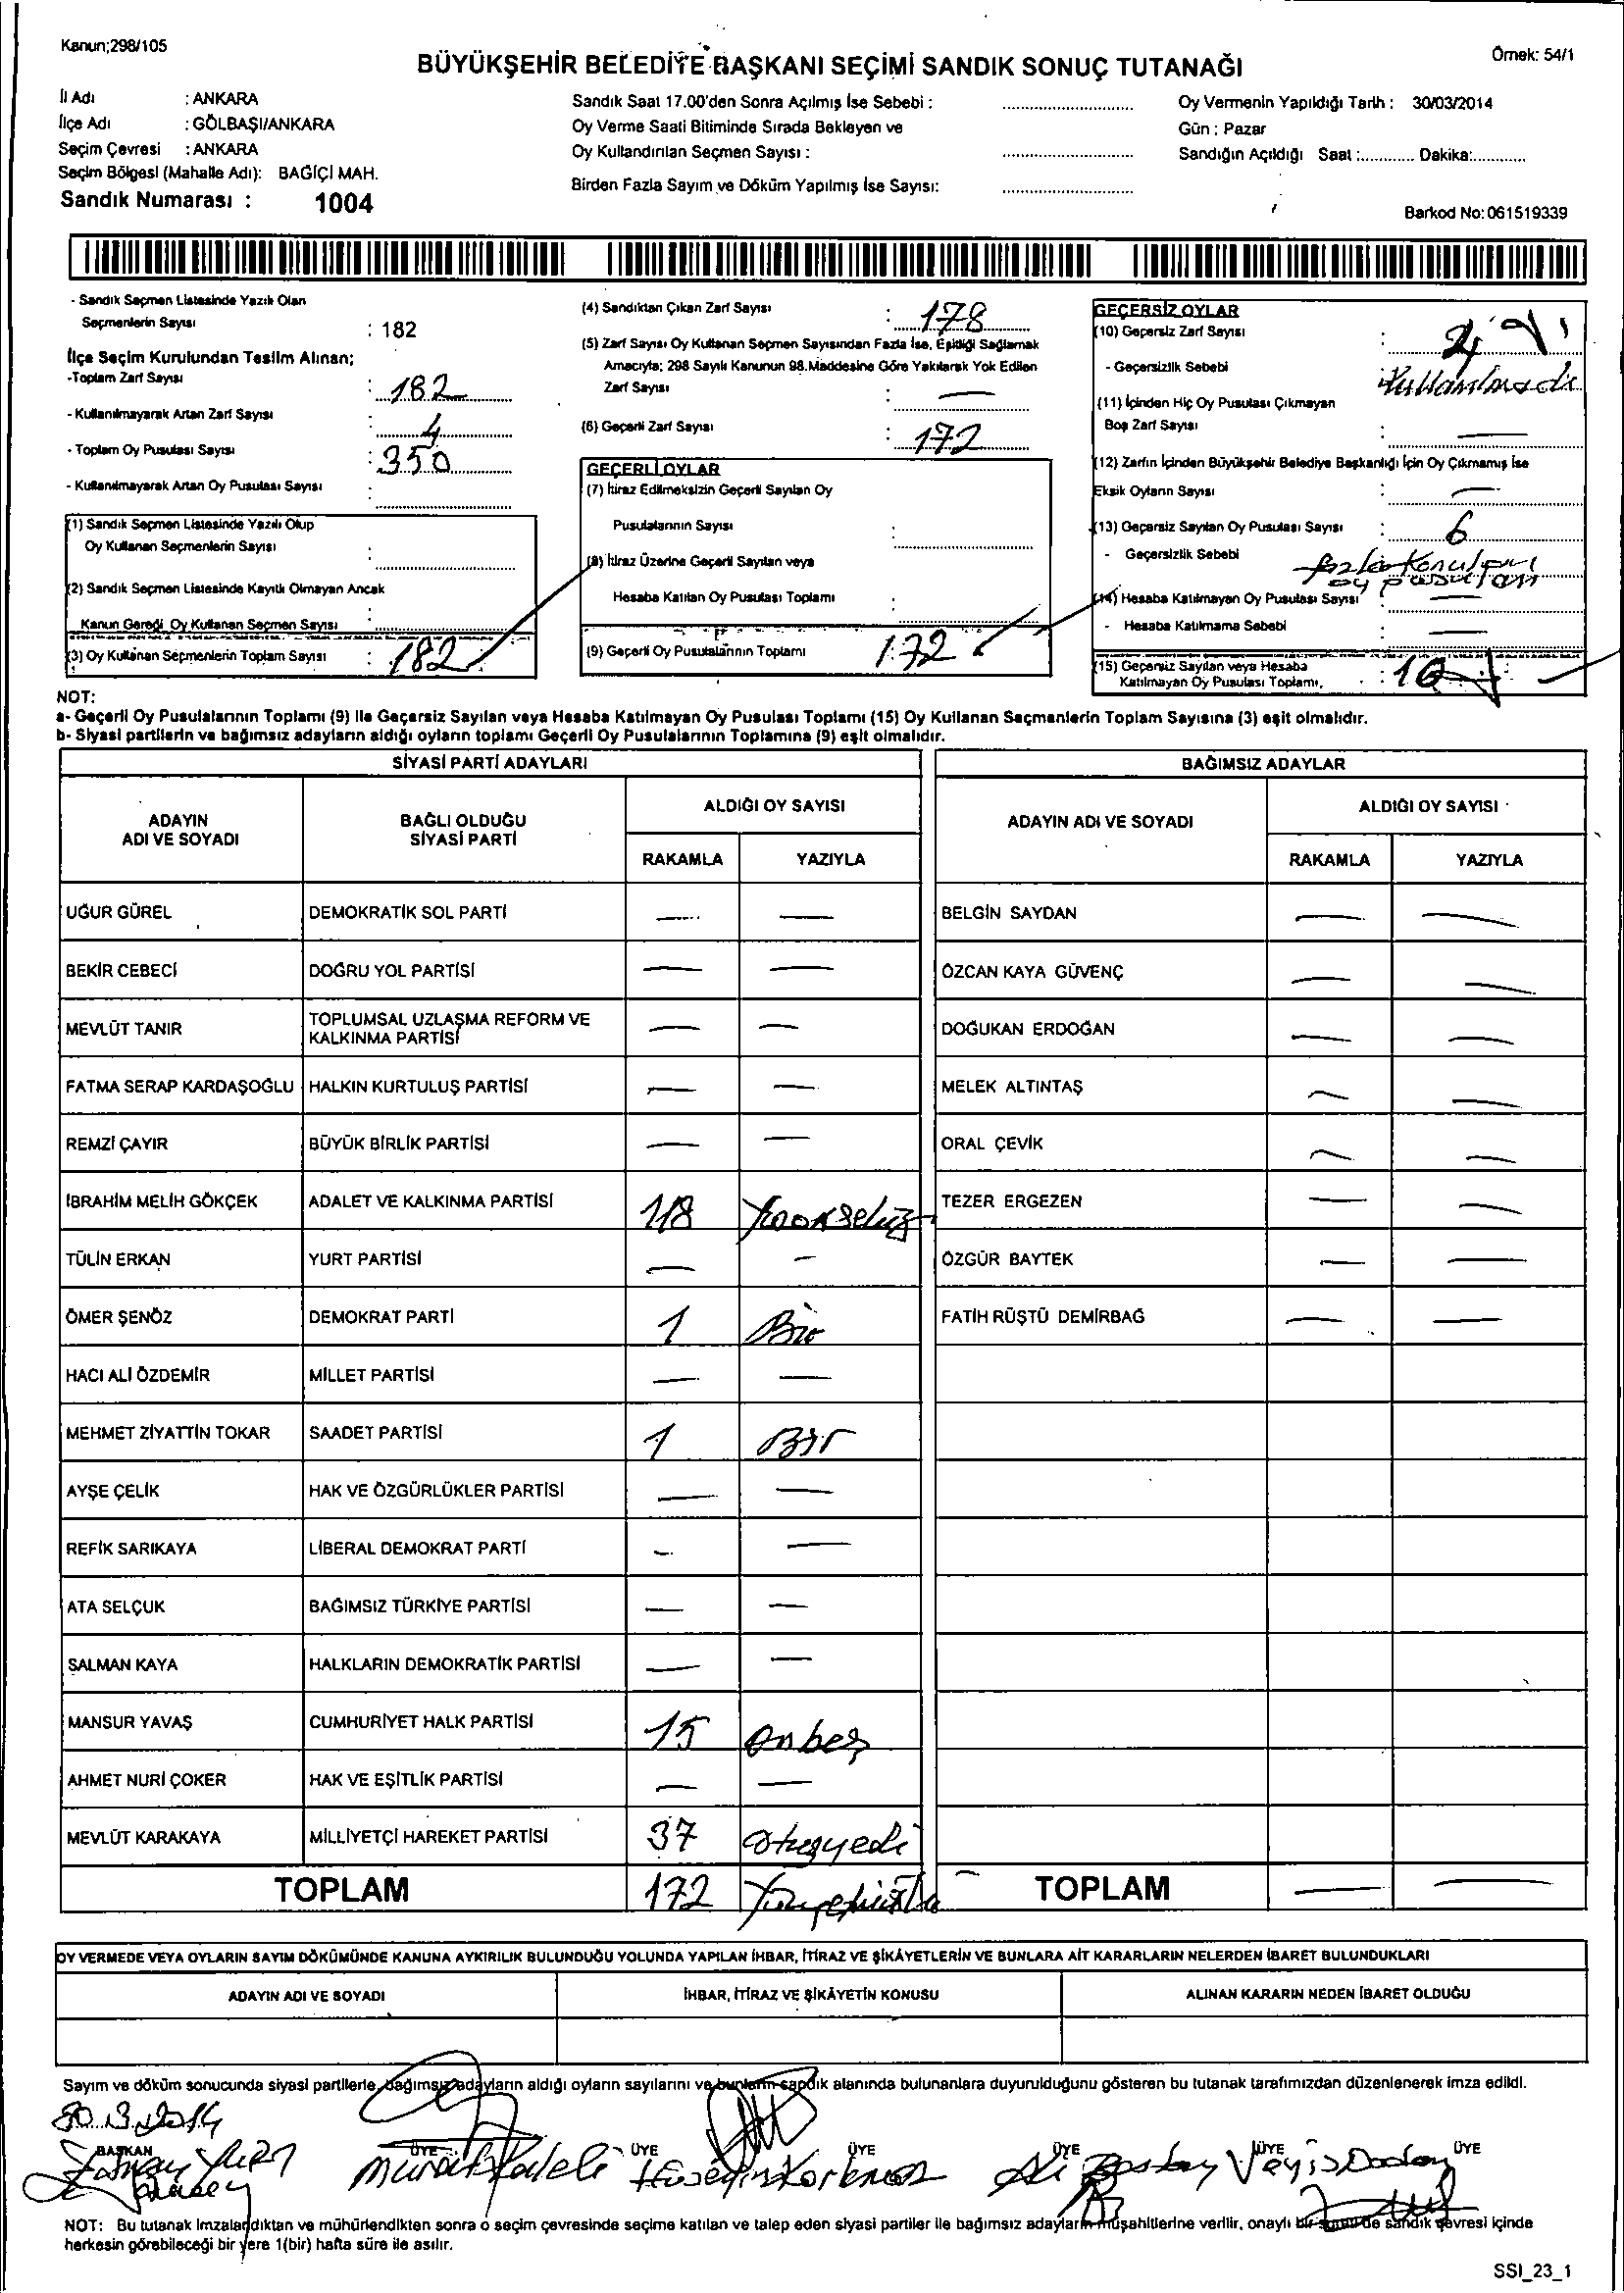 Kanun;298/105
Örnek: 54/1
BÜYÜKŞEHİR BELEDİYE BAŞKANI SEÇİMİ SANDIK SONUÇ TUTANAĞI
İl Adı : ANKARA
İlçe Adı : GÖLBAŞI/ANKARA
Seçim Çevresi : ANKARA
Seçim Bölgesi (Mahalle Adı): BAĞİÇİ MAH.
Sandık Numarası : 1004
Sandık Saat 17.00'den Sonra Açılmış İse Sebebi :
Oy Verme Saati Bitiminde Sırada Bekleyen ve
Oy Kullandırılan Seçmen Sayısı :
Birden Fazla Sayım ve Döküm Yapılmış İse Sayısı:
Oy Vermenin Yapıldığı Tarih : 30/03/2014
Gün : Pazar
Sandığın Açıldığı Saat :............ Dakika:............
Barkod No: 061519339
- Sandık Seçmen Listesinde Yazılı Olan
Seçmenlerin Sayısı : 182
İlçe Seçim Kurulundan Teslim Alınan;
-Toplam Zarf Sayısı : 182
- Kullanılmayarak Artan Zarf Sayısı : 4
- Toplam Oy Pusulası Sayısı : 350
- Kullanılmayarak Artan Oy Pusulası Sayısı :
(1) Sandık Seçmen Listesinde Yazılı Olup
Oy Kullanan Seçmenlerin Sayısı :
(2) Sandık Seçmen Listesinde Kayıtlı Olmayan Ancak
Kanun Gereği Oy Kullanan Seçmen Sayısı :
(3) Oy Kullanan Seçmenlerin Toplam Sayısı : 182
(4) Sandıktan Çıkan Zarf Sayısı : 178
(5) Zarf Sayısı Oy Kullanan Seçmen Sayısından Fazla İse, Eşitliği Sağlamak
Amacıyla; 298 Sayılı Kanunun 98.Maddesine Göre Yakılarak Yok Edilen
Zarf Sayısı : —
(6) Geçerli Zarf Sayısı : 172
GEÇERLİ OYLAR
(7) İtiraz Edilmeksizin Geçerli Sayılan Oy
Pusulalarının Sayısı :
(8) İtiraz Üzerine Geçerli Sayılan veya
Hesaba Katılan Oy Pusulası Toplamı :
(9) Geçerli Oy Pusulalarının Toplamı 172
GEÇERSİZ OYLAR
(10) Geçersiz Zarf Sayısı : 4
- Geçersizlik Sebebi : Kullanılmadı
(11) İçinden Hiç Oy Pusulası Çıkmayan
Boş Zarf Sayısı : —
(12) Zarfın İçinden Büyükşehir Belediye Başkanlığı İçin Oy Çıkmamış İse
Eksik Oyların Sayısı : —
(13) Geçersiz Sayılan Oy Pusulası Sayısı : 6
- Geçersizlik Sebebi fazla konulan
oy pusulası
(14) Hesaba Katılmayan Oy Pusulası Sayısı : —
- Hesaba Katılmama Sebebi : —
(15) Geçersiz Sayılan veya Hesaba
Katılmayan Oy Pusulası Toplamı. : 10
NOT:
a- Geçerli Oy Pusulalarının Toplamı (9) ile Geçersiz Sayılan veya Hesaba Katılmayan Oy Pusulası Toplamı (15) Oy Kullanan Seçmenlerin Toplam Sayısına (3) eşit olmalıdır.
b- Siyasi partilerin ve bağımsız adayların aldığı oyların toplamı Geçerli Oy Pusulalarının Toplamına (9) eşit olmalıdır.
SİYASİ PARTİ ADAYLARI
ADAYIN ADI VE SOYADI
BAĞLI OLDUĞU SİYASİ PARTİ
ALDIĞI OY SAYISI
RAKAMLA YAZIYLA
UĞUR GÜREL DEMOKRATİK SOL PARTİ — —
BEKİR CEBECİ DOĞRU YOL PARTİSİ — —
MEVLÜT TANIR TOPLUMSAL UZLAŞMA REFORM VE KALKINMA PARTİSİ — —
FATMA SERAP KARDAŞOĞLU HALKIN KURTULUŞ PARTİSİ — —
REMZİ ÇAYIR BÜYÜK BİRLİK PARTİSİ — —
İBRAHİM MELİH GÖKÇEK ADALET VE KALKINMA PARTİSİ 118 Yüzonsekiz
TÜLİN ERKAN YURT PARTİSİ — —
ÖMER ŞENÖZ DEMOKRAT PARTİ 1 Bir
HACI ALİ ÖZDEMİR MİLLET PARTİSİ — —
MEHMET ZİYATTİN TOKAR SAADET PARTİSİ 1 Bir
AYŞE ÇELİK HAK VE ÖZGÜRLÜKLER PARTİSİ — —
REFİK SARIKAYA LİBERAL DEMOKRAT PARTİ — —
ATA SELÇUK BAĞIMSIZ TÜRKİYE PARTİSİ — —
SALMAN KAYA HALKLARIN DEMOKRATİK PARTİSİ — —
MANSUR YAVAŞ CUMHURİYET HALK PARTİSİ 15 onbeş
AHMET NURİ ÇOKER HAK VE EŞİTLİK PARTİSİ — —
MEVLÜT KARAKAYA MİLLİYETÇİ HAREKET PARTİSİ 37 otuzyedi
TOPLAM 172 Yüzyetmişiki
BAĞIMSIZ ADAYLAR
ADAYIN ADI VE SOYADI
ALDIĞI OY SAYISI
RAKAMLA YAZIYLA
BELGİN SAYDAN — —
ÖZCAN KAYA GÜVENÇ — —
DOĞUKAN ERDOĞAN — —
MELEK ALTINTAŞ — —
ORAL ÇEVİK — —
TEZER ERGEZEN — —
ÖZGÜR BAYTEK — —
FATİH RÜŞTÜ DEMİRBAĞ — —
TOPLAM — —
OY VERMEDE VEYA OYLARIN SAYIM DÖKÜMÜNDE KANUNA AYKIRILIK BULUNDUĞU YOLUNDA YAPILAN İHBAR, İTİRAZ VE ŞİKÂYETLERİN VE BUNLARA AİT KARARLARIN NELERDEN İBARET BULUNDUKLARI
ADAYIN ADI VE SOYADI İHBAR, İTİRAZ VE ŞİKÂYETİN KONUSU ALINAN KARARIN NEDEN İBARET OLDUĞU
Sayım ve döküm sonucunda siyasi partilerle, bağımsız adayların aldığı oyların sayılarını ve bunların sandık alanında bulunanlara duyurulduğunu gösteren bu tutanak tarafımızdan düzenlenerek imza edildi.
30.3.2014
BAŞKAN ÜYE ÜYE ÜYE ÜYE ÜYE ÜYE
Murat Kaleli Hüseyin Korkmaz Ali Bostay Veyis Doğan
NOT: Bu tutanak imzalandıktan ve mühürlendikten sonra o seçim çevresinde seçime katılan ve talep eden siyasi partiler ile bağımsız adayların müşahitlerine verilir, onaylı bir sureti de sandık çevresi içinde
herkesin görebileceği bir yere 1(bir) hafta süre ile asılır.
SSI_23_1